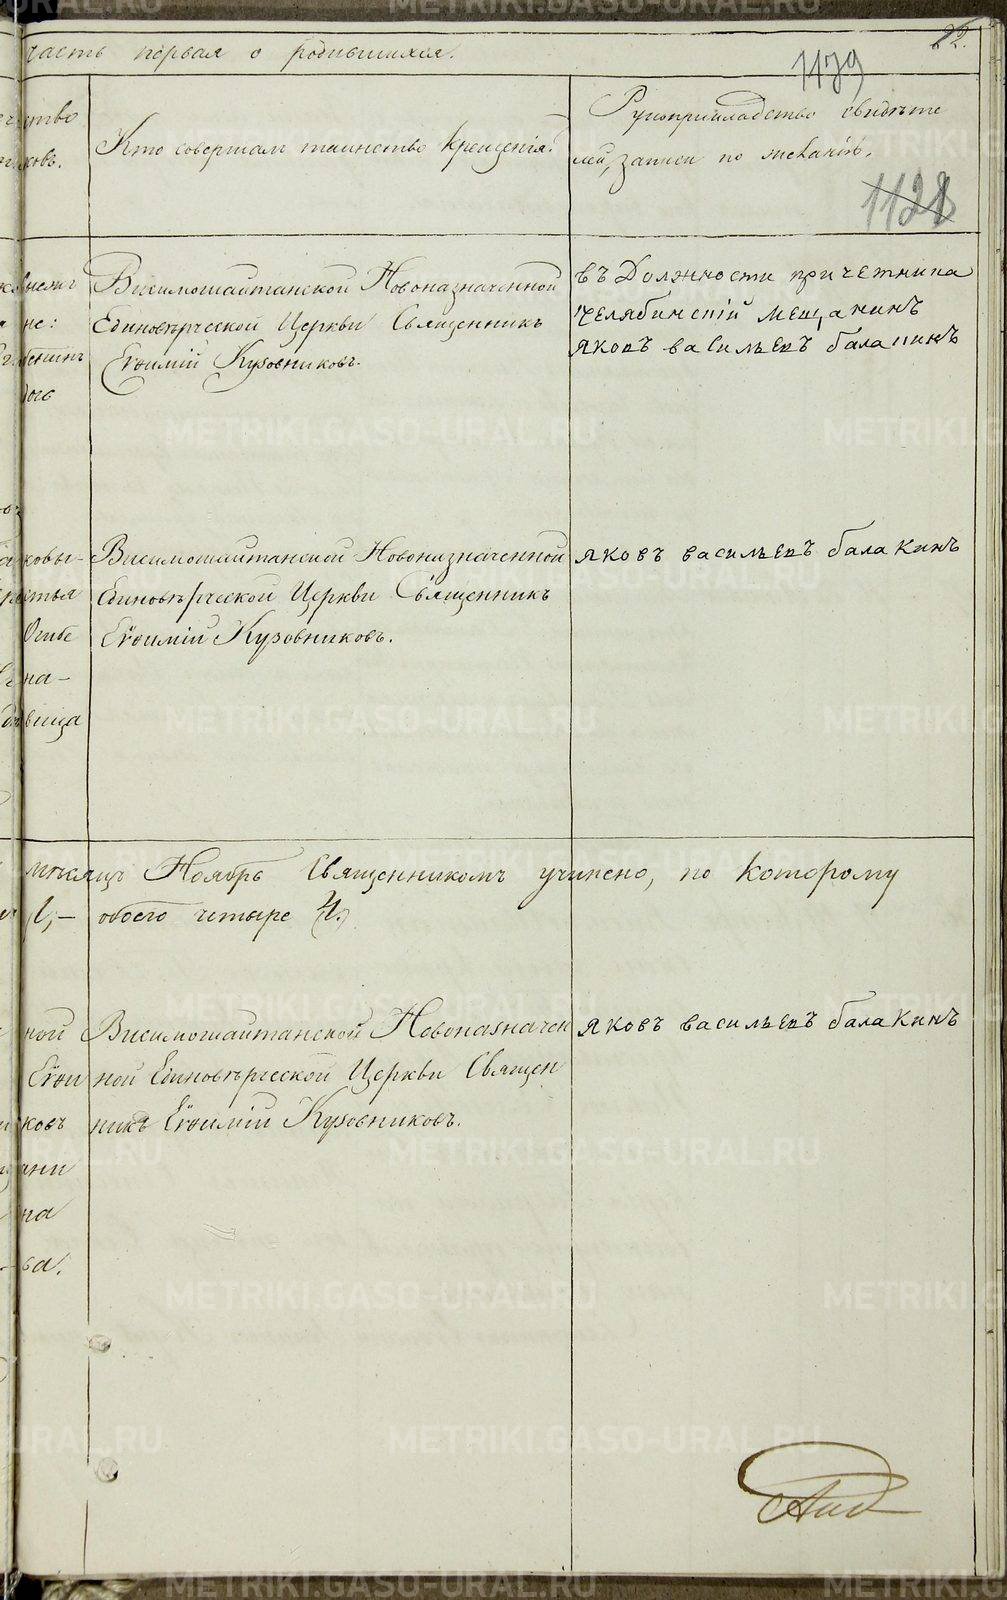 часть первая о родившихся.
22.
1179
Кто совершалъ таинство крещенія.
Рукоприкладство свидѣте
лей, записи по желанію.
1128
Висимошайтанской Новоназначенной
Единовѣрческой Церкви Священникъ
Евѳимій Кузовниковъ.
въ Должности причетника
Челябинскій Мещанинъ
Яковъ васильевъ балакинъ
Висимошайтанской Новоназначенной
Единовѣрческой Церкви Священникъ
Евѳимій Кузовниковъ.
Яковъ васильевъ балакинъ
мѣсяцъ Ноябрь Священникомъ учинено, по которому
обоего четыре 4.
Висимошайтанской Новоназначен
ной Единовѣрческой Церкви Священ
никъ Евѳимій Кузовниковъ.
Яковъ васильевъ балакинъ
METRIKI.GASO-URAL.RU